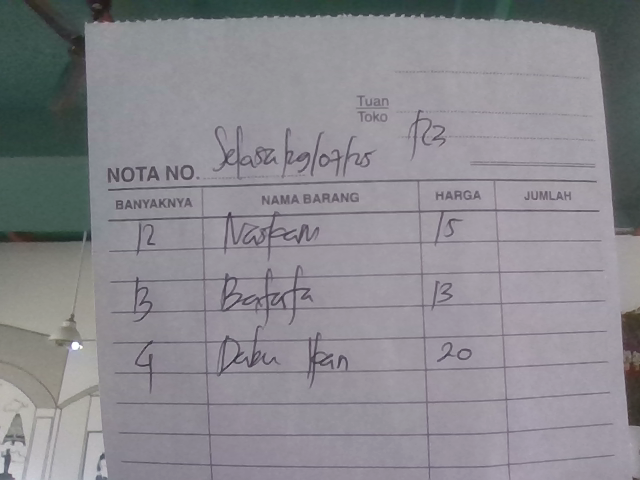 Tuan
Toko
R3
NOTA NO. Selasa/29/07/25
BANYAKNYA NAMA BARANG HARGA JUMLAH
12 Naskam 15
13 Batata 13
4 Dabu Ikan 20